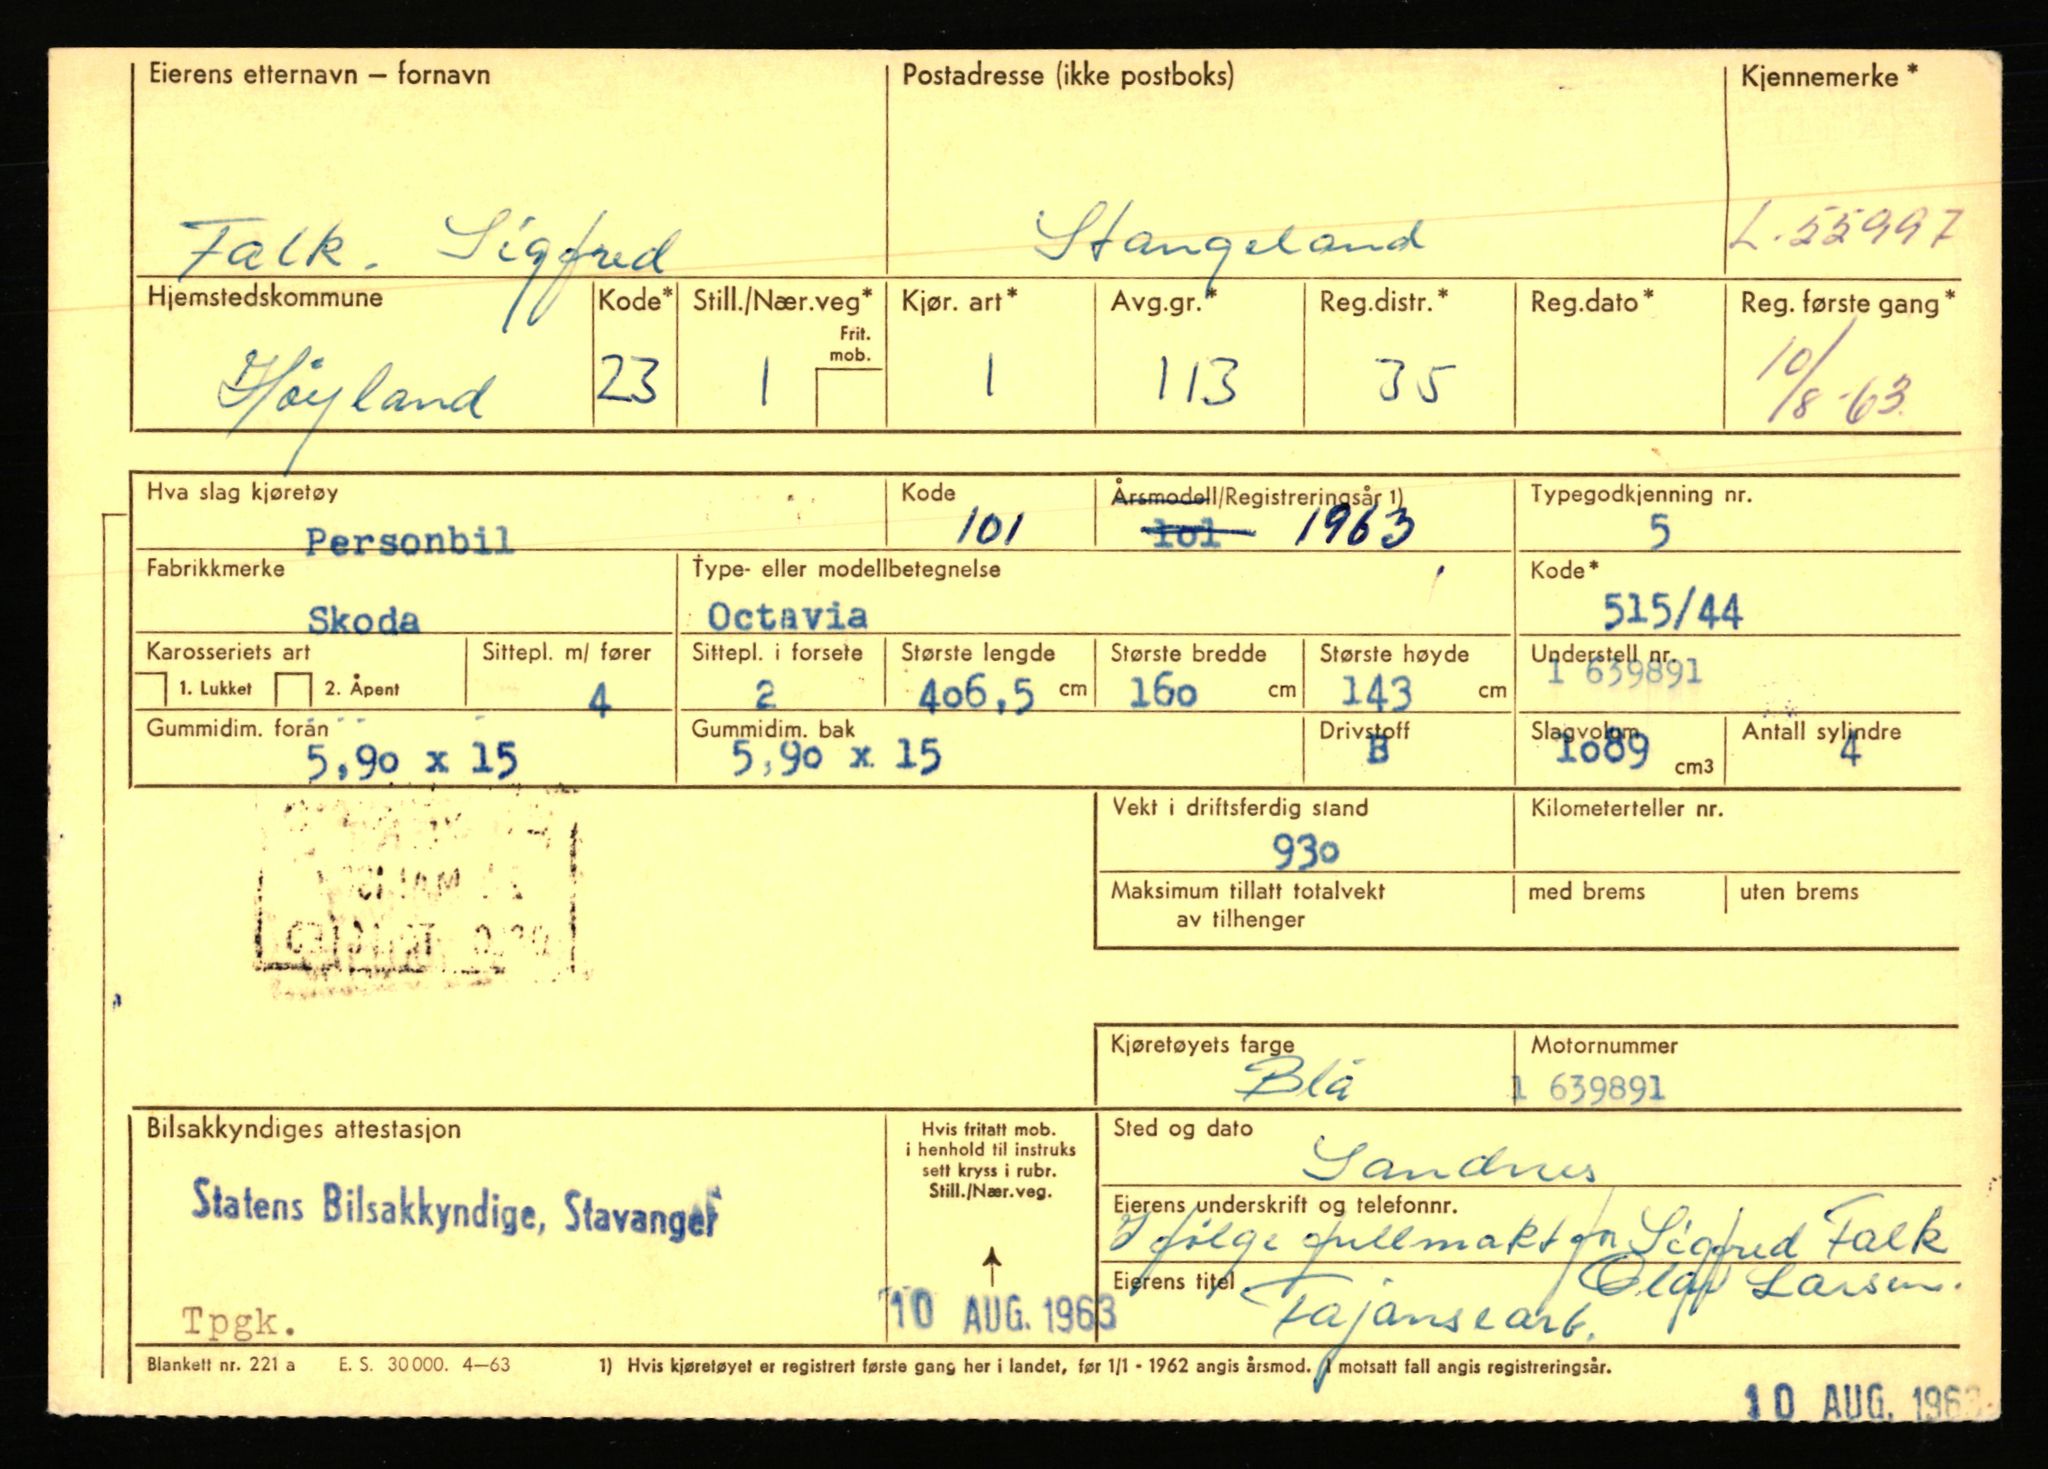 Eierens etternavn – fornavn Postadresse (ikke postboks) Kjennemerke*
Falk. Sigfred Stangeland L-55997
Hjemstedskommune Kode* Still./Nær.veg* Kjør. art* Avg.gr.* Reg.distr.* Reg.dato* Reg. første gang*
Frit.
mob.
Høyland 23 1 1 113 35 10/8-63.
Hva slag kjøretøy Kode Årsmodell/Registreringsår 1) Typegodkjenning nr.
Personbil 101 1o1 1963 5
Fabrikkmerke Type- eller modellbetegnelse Kode*
Skoda Octavia 515/44
Karosseriets art Sittepl. m/ fører Sittepl. i forsete Største lengde Største bredde Største høyde Understell nr.
1. Lukket 2. Åpent 4 2 4o6,5 cm 16o cm 143 cm 1 639891
Gummidim. foran Gummidim. bak Drivstoff Slagvolum Antall sylindre
5,9o x 15 5,9o x 15 B 1o89 cm3 4
Vekt i driftsferdig stand Kilometerteller nr.
93o
Maksimum tillatt totalvekt med brems uten brems
av tilhenger
Kjøretøyets farge Motornummer
Blå 1 639891
Bilsakkyndiges attestasjon
Hvis fritatt mob.
i henhold til instruks
sett kryss i rubr.
Still./Nær.veg.
Sted og dato
Sandnes
Statens Bilsakkyndige, Stavanger
Eierens underskrift og telefonnr.
I følge fullmakt for Sigfred Falk
Olaf Larsen.
Eierens titel
Fajansearb.
Tpgk.
10 AUG. 1963
Blankett nr. 221 a E. S. 30 000. 4–63 1) Hvis kjøretøyet er registrert første gang her i landet, før 1/1 - 1962 angis årsmod. I motsatt fall angis registreringsår.
10 AUG. 1963